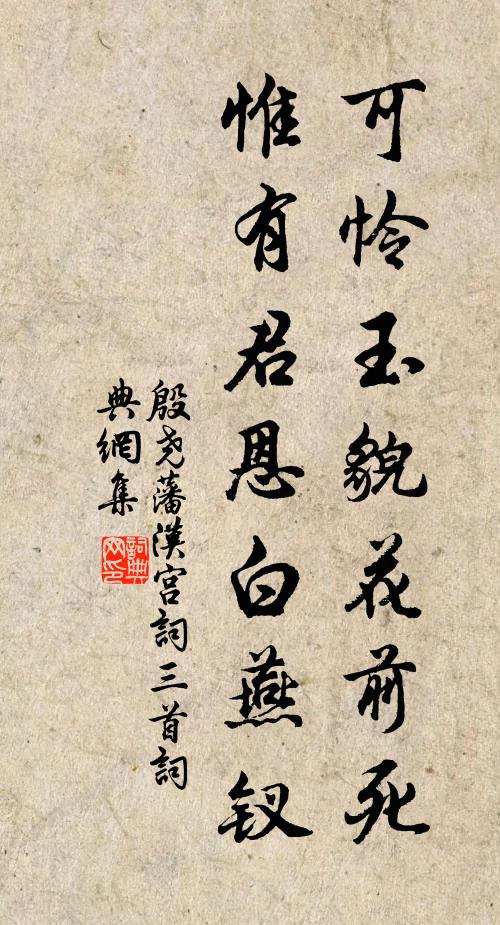 可怜玉貌花前死
惟有君恩白燕钗
殷尧藩漢宮詞三首詞
典網集
詞典
网印